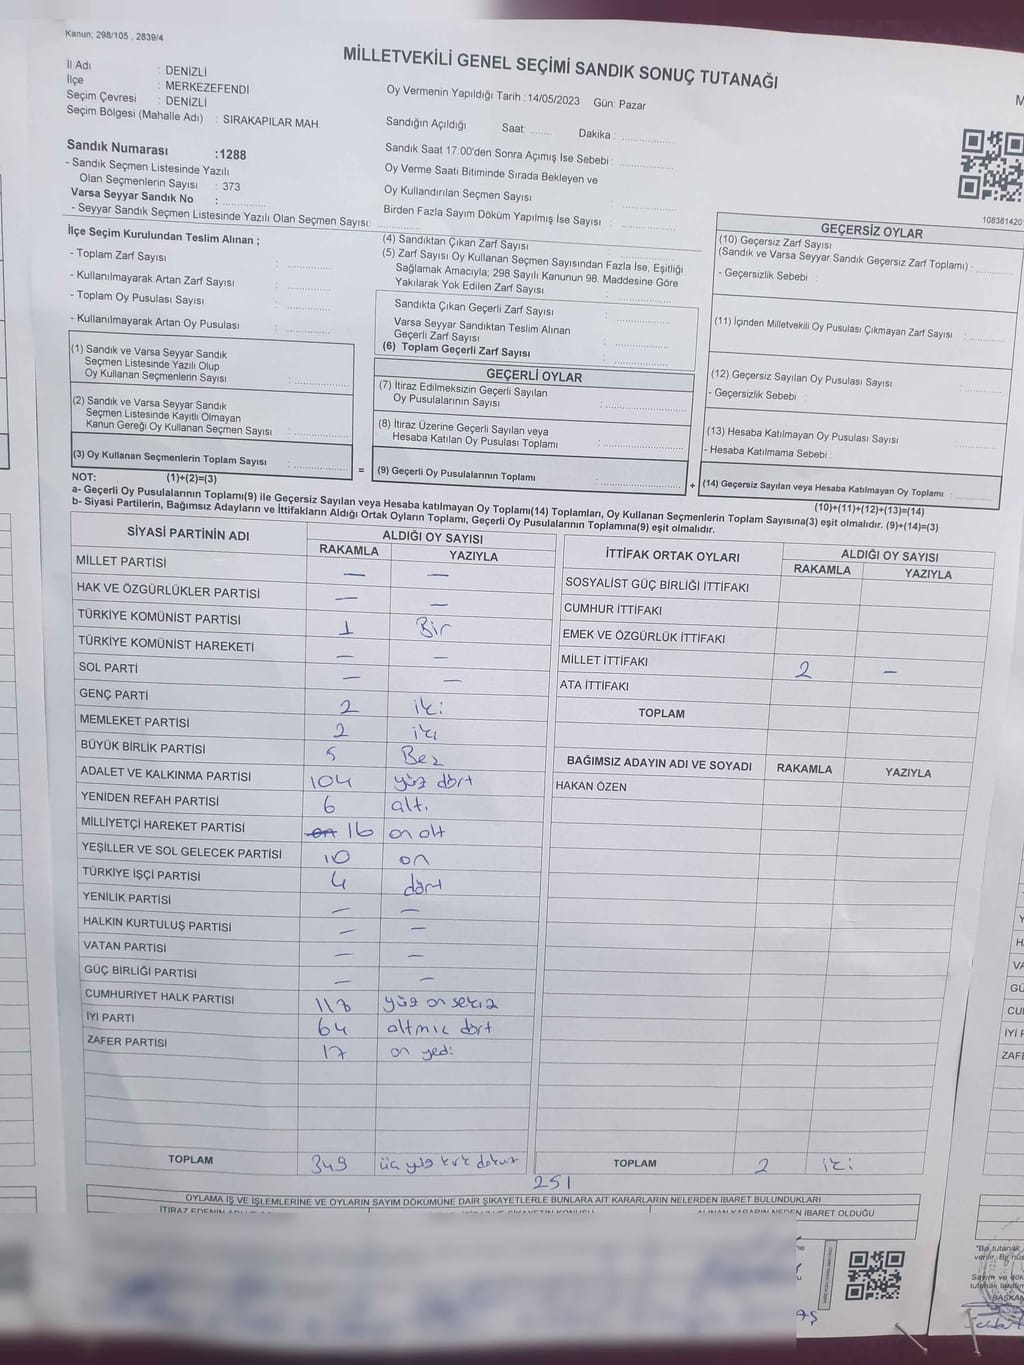 Kanun: 298/105 , 2839/4
MİLLETVEKİLİ GENEL SEÇİMİ SANDIK SONUÇ TUTANAĞI
İl Adı : DENİZLİ
İlçe : MERKEZEFENDİ
Seçim Çevresi : DENİZLİ
Seçim Bölgesi (Mahalle Adı) : SIRAKAPILAR MAH
Sandık Numarası :1288
- Sandık Seçmen Listesinde Yazılı
Olan Seçmenlerin Sayısı : 373
Varsa Seyyar Sandık No : ............
- Seyyar Sandık Seçmen Listesinde Yazılı Olan Seçmen Sayısı: ............
Oy Vermenin Yapıldığı Tarih : 14/05/2023 Gün: Pazar
Sandığın Açıldığı Saat: ........ Dakika : ................
Sandık Saat 17:00'den Sonra Açımış İse Sebebi : ................
Oy Verme Saati Bitiminde Sırada Bekleyen ve
Oy Kullandırılan Seçmen Sayısı : ................
Birden Fazla Sayım Döküm Yapılmış İse Sayısı : ................
108381420
İlçe Seçim Kurulundan Teslim Alınan ;
- Toplam Zarf Sayısı : ............
- Kullanılmayarak Artan Zarf Sayısı : ............
- Toplam Oy Pusulası Sayısı : ............
- Kullanılmayarak Artan Oy Pusulası : ............
(1) Sandık ve Varsa Seyyar Sandık
Seçmen Listesinde Yazılı Olup
Oy Kullanan Seçmenlerin Sayısı : ................
(2) Sandık ve Varsa Seyyar Sandık
Seçmen Listesinde Kayıtlı Olmayan
Kanun Gereği Oy Kullanan Seçmen Sayısı : ................
(3) Oy Kullanan Seçmenlerin Toplam Sayısı : ................
(4) Sandıktan Çıkan Zarf Sayısı : ................
(5) Zarf Sayısı Oy Kullanan Seçmen Sayısından Fazla İse, Eşitliği
Sağlamak Amacıyla; 298 Sayılı Kanunun 98. Maddesine Göre
Yakılarak Yok Edilen Zarf Sayısı : ................
Sandıkta Çıkan Geçerli Zarf Sayısı : ................
Varsa Seyyar Sandıktan Teslim Alınan
Geçerli Zarf Sayısı : ................
(6) Toplam Geçerli Zarf Sayısı : ................
GEÇERLİ OYLAR
(7) İtiraz Edilmeksizin Geçerli Sayılan
Oy Pusulalarının Sayısı : ................
(8) İtiraz Üzerine Geçerli Sayılan veya
Hesaba Katılan Oy Pusulası Toplamı : ................
= (9) Geçerli Oy Pusulalarının Toplamı : ................
GEÇERSİZ OYLAR
(10) Geçersiz Zarf Sayısı
(Sandık ve Varsa Seyyar Sandık Geçersiz Zarf Toplamı) : ............
- Geçersizlik Sebebi :
(11) İçinden Milletvekili Oy Pusulası Çıkmayan Zarf Sayısı : ............
(12) Geçersiz Sayılan Oy Pusulası Sayısı : ............
- Geçersizlik Sebebi :
(13) Hesaba Katılmayan Oy Pusulası Sayısı : ............
- Hesaba Katılmama Sebebi :
+ (14) Geçersiz Sayılan veya Hesaba Katılmayan Oy Toplamı : ............
NOT: (1)+(2)=(3) (10)+(11)+(12)+(13)=(14)
a- Geçerli Oy Pusulalarının Toplamı(9) ile Geçersiz Sayılan veya Hesaba katılmayan Oy Toplamı(14) Toplamları, Oy Kullanan Seçmenlerin Toplam Sayısına(3) eşit olmalıdır. (9)+(14)=(3)
b- Siyasi Partilerin, Bağımsız Adayların ve İttifakların Aldığı Ortak Oyların Toplamı, Geçerli Oy Pusulalarının Toplamına(9) eşit olmalıdır.
SİYASİ PARTİNİN ADI ALDIĞI OY SAYISI
RAKAMLA YAZIYLA
MİLLET PARTİSİ — —
HAK VE ÖZGÜRLÜKLER PARTİSİ — —
TÜRKİYE KOMÜNİST PARTİSİ 1 Bir
TÜRKİYE KOMÜNİST HAREKETİ — —
SOL PARTİ — —
GENÇ PARTİ 2 iki
MEMLEKET PARTİSİ 2 iki
BÜYÜK BİRLİK PARTİSİ 5 Beş
ADALET VE KALKINMA PARTİSİ 104 yüz dört
YENİDEN REFAH PARTİSİ 6 altı
MİLLİYETÇİ HAREKET PARTİSİ on 16 on altı
YEŞİLLER VE SOL GELECEK PARTİSİ 10 on
TÜRKİYE İŞÇİ PARTİSİ 4 dört
YENİLİK PARTİSİ — —
HALKIN KURTULUŞ PARTİSİ — —
VATAN PARTİSİ — —
GÜÇ BİRLİĞİ PARTİSİ — —
CUMHURİYET HALK PARTİSİ 118 yüz on sekiz
İYİ PARTİ 64 altmış dört
ZAFER PARTİSİ 17 on yedi
TOPLAM 349 üç yüz kırk dokuz
İTTİFAK ORTAK OYLARI ALDIĞI OY SAYISI
RAKAMLA YAZIYLA
SOSYALİST GÜÇ BİRLİĞİ İTTİFAKI
CUMHUR İTTİFAKI
EMEK VE ÖZGÜRLÜK İTTİFAKI
MİLLET İTTİFAKI 2 —
ATA İTTİFAKI
TOPLAM
BAĞIMSIZ ADAYIN ADI VE SOYADI RAKAMLA YAZIYLA
HAKAN ÖZEN
TOPLAM 2 iki
251
OYLAMA İŞ VE İŞLEMLERİNE VE OYLARIN SAYIM DÖKÜMÜNE DAİR ŞİKAYETLERLE BUNLARA AİT KARARLARIN NELERDEN İBARET BULUNDUKLARI
ALINAN KARARIN NEDEN İBARET OLDUĞU